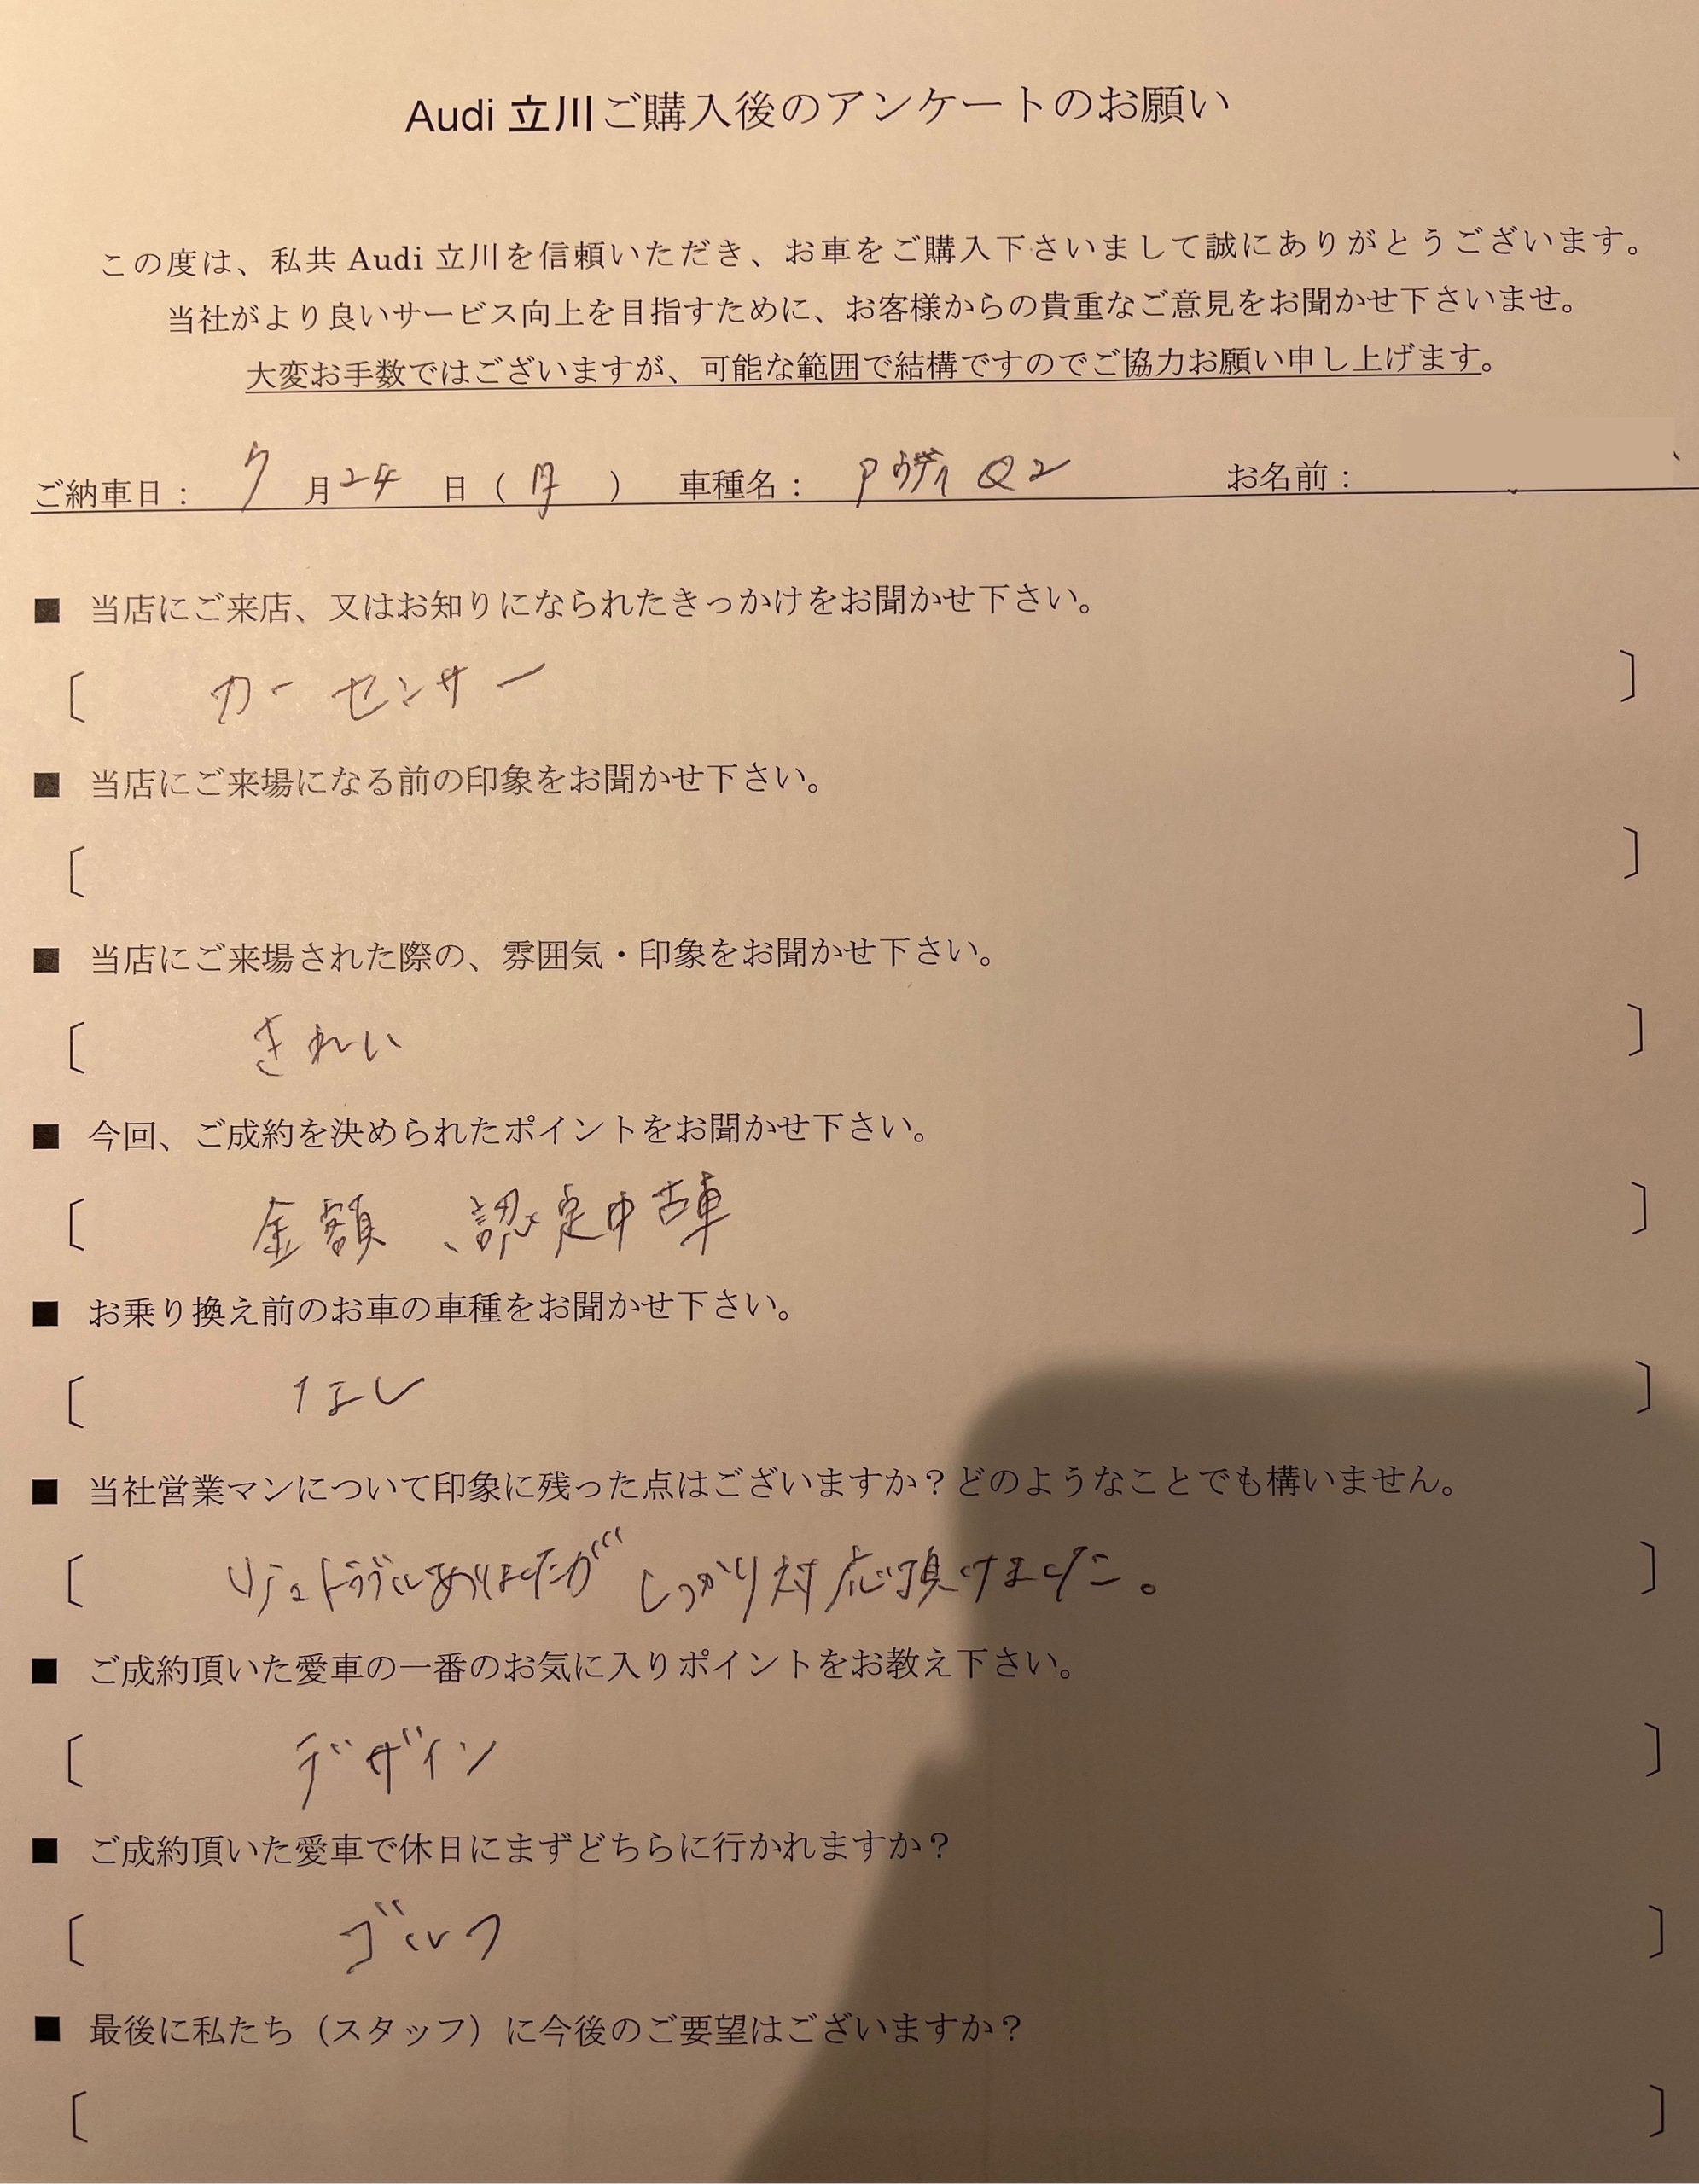 Audi 立川ご購入後のアンケートのお願い
この度は、私共 Audi 立川を信頼いただき、お車をご購入下さいまして誠にありがとうございます。
当社がより良いサービス向上を目指すために、お客様からの貴重なご意見をお聞かせ下さいませ。
大変お手数ではございますが、可能な範囲で結構ですのでご協力お願い申し上げます。
ご納車日： 7 月 24 日（ 月 ） 車種名： アウディ Q2 お名前：
■ 当店にご来店、又はお知りになられたきっかけをお聞かせ下さい。
〔 カーセンサー 〕
■ 当店にご来場になる前の印象をお聞かせ下さい。
〔 〕
■ 当店にご来場された際の、雰囲気・印象をお聞かせ下さい。
〔 きれい 〕
■ 今回、ご成約を決められたポイントをお聞かせ下さい。
〔 金額、認定中古車 〕
■ お乗り換え前のお車の車種をお聞かせ下さい。
〔 なし 〕
■ 当社営業マンについて印象に残った点はございますか？どのようなことでも構いません。
〔 トラブルありましたが しっかり対応頂けました。 〕
■ ご成約頂いた愛車の一番のお気に入りポイントをお教え下さい。
〔 デザイン 〕
■ ご成約頂いた愛車で休日にまずどちらに行かれますか？
〔 ゴルフ 〕
■ 最後に私たち（スタッフ）に今後のご要望はございますか？
〔 〕